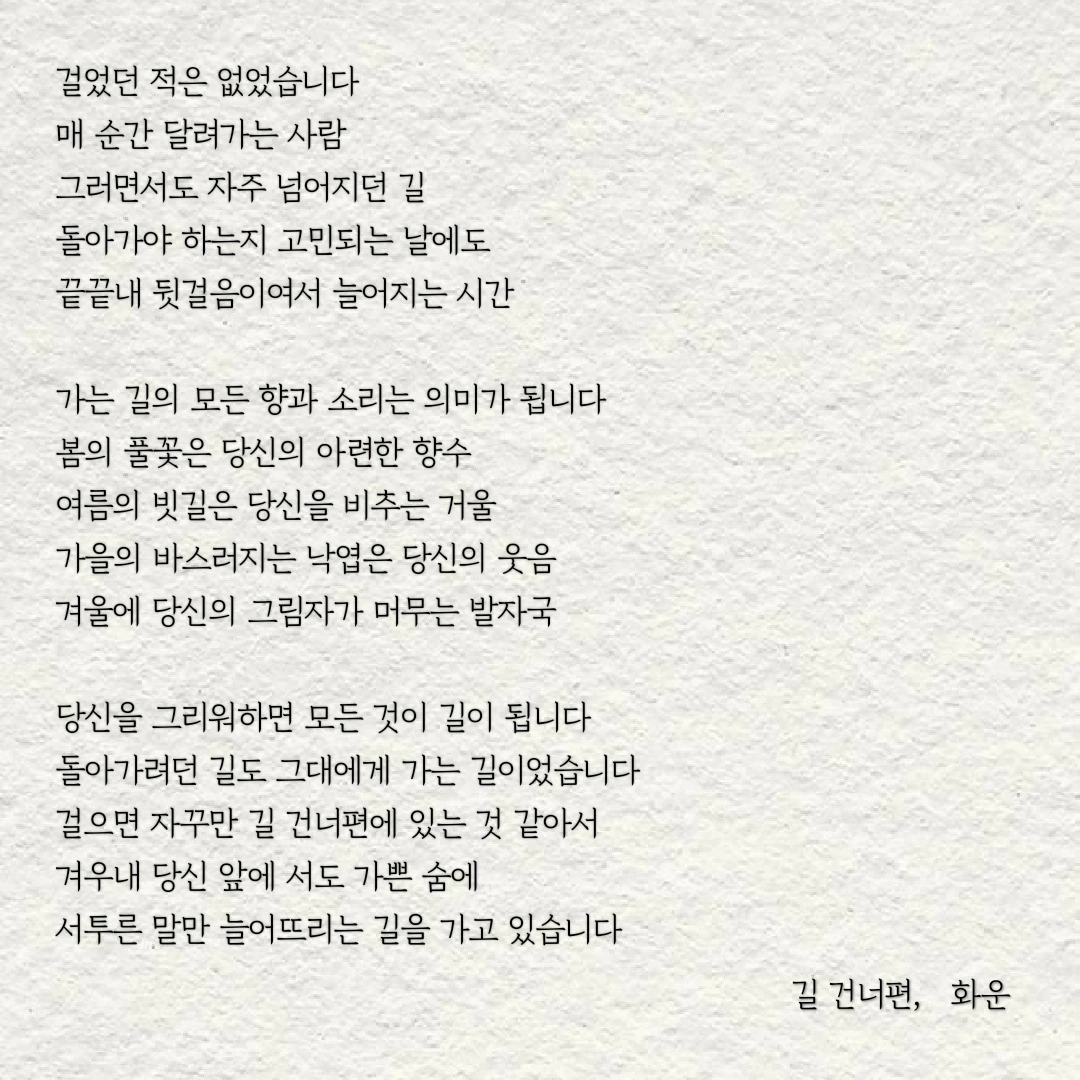 걸었던 적은 없었습니다
매 순간 달려가는 사람
그러면서도 자주 넘어지던 길
돌아가야 하는지 고민되는 날에도
끝끝내 뒷걸음이여서 늘어지는 시간
가는 길의 모든 향과 소리는 의미가 됩니다
봄의 풀꽃은 당신의 아련한 향수
여름의 빗길은 당신을 비추는 거울
가을의 바스러지는 낙엽은 당신의 웃음
겨울에 당신의 그림자가 머무는 발자국
당신을 그리워하면 모든 것이 길이 됩니다
돌아가려던 길도 그대에게 가는 길이었습니다
걸으면 자꾸만 길 건너편에 있는 것 같아서
겨우내 당신 앞에 서도 가쁜 숨에
서투른 말만 늘어뜨리는 길을 가고 있습니다
길 건너편, 화운